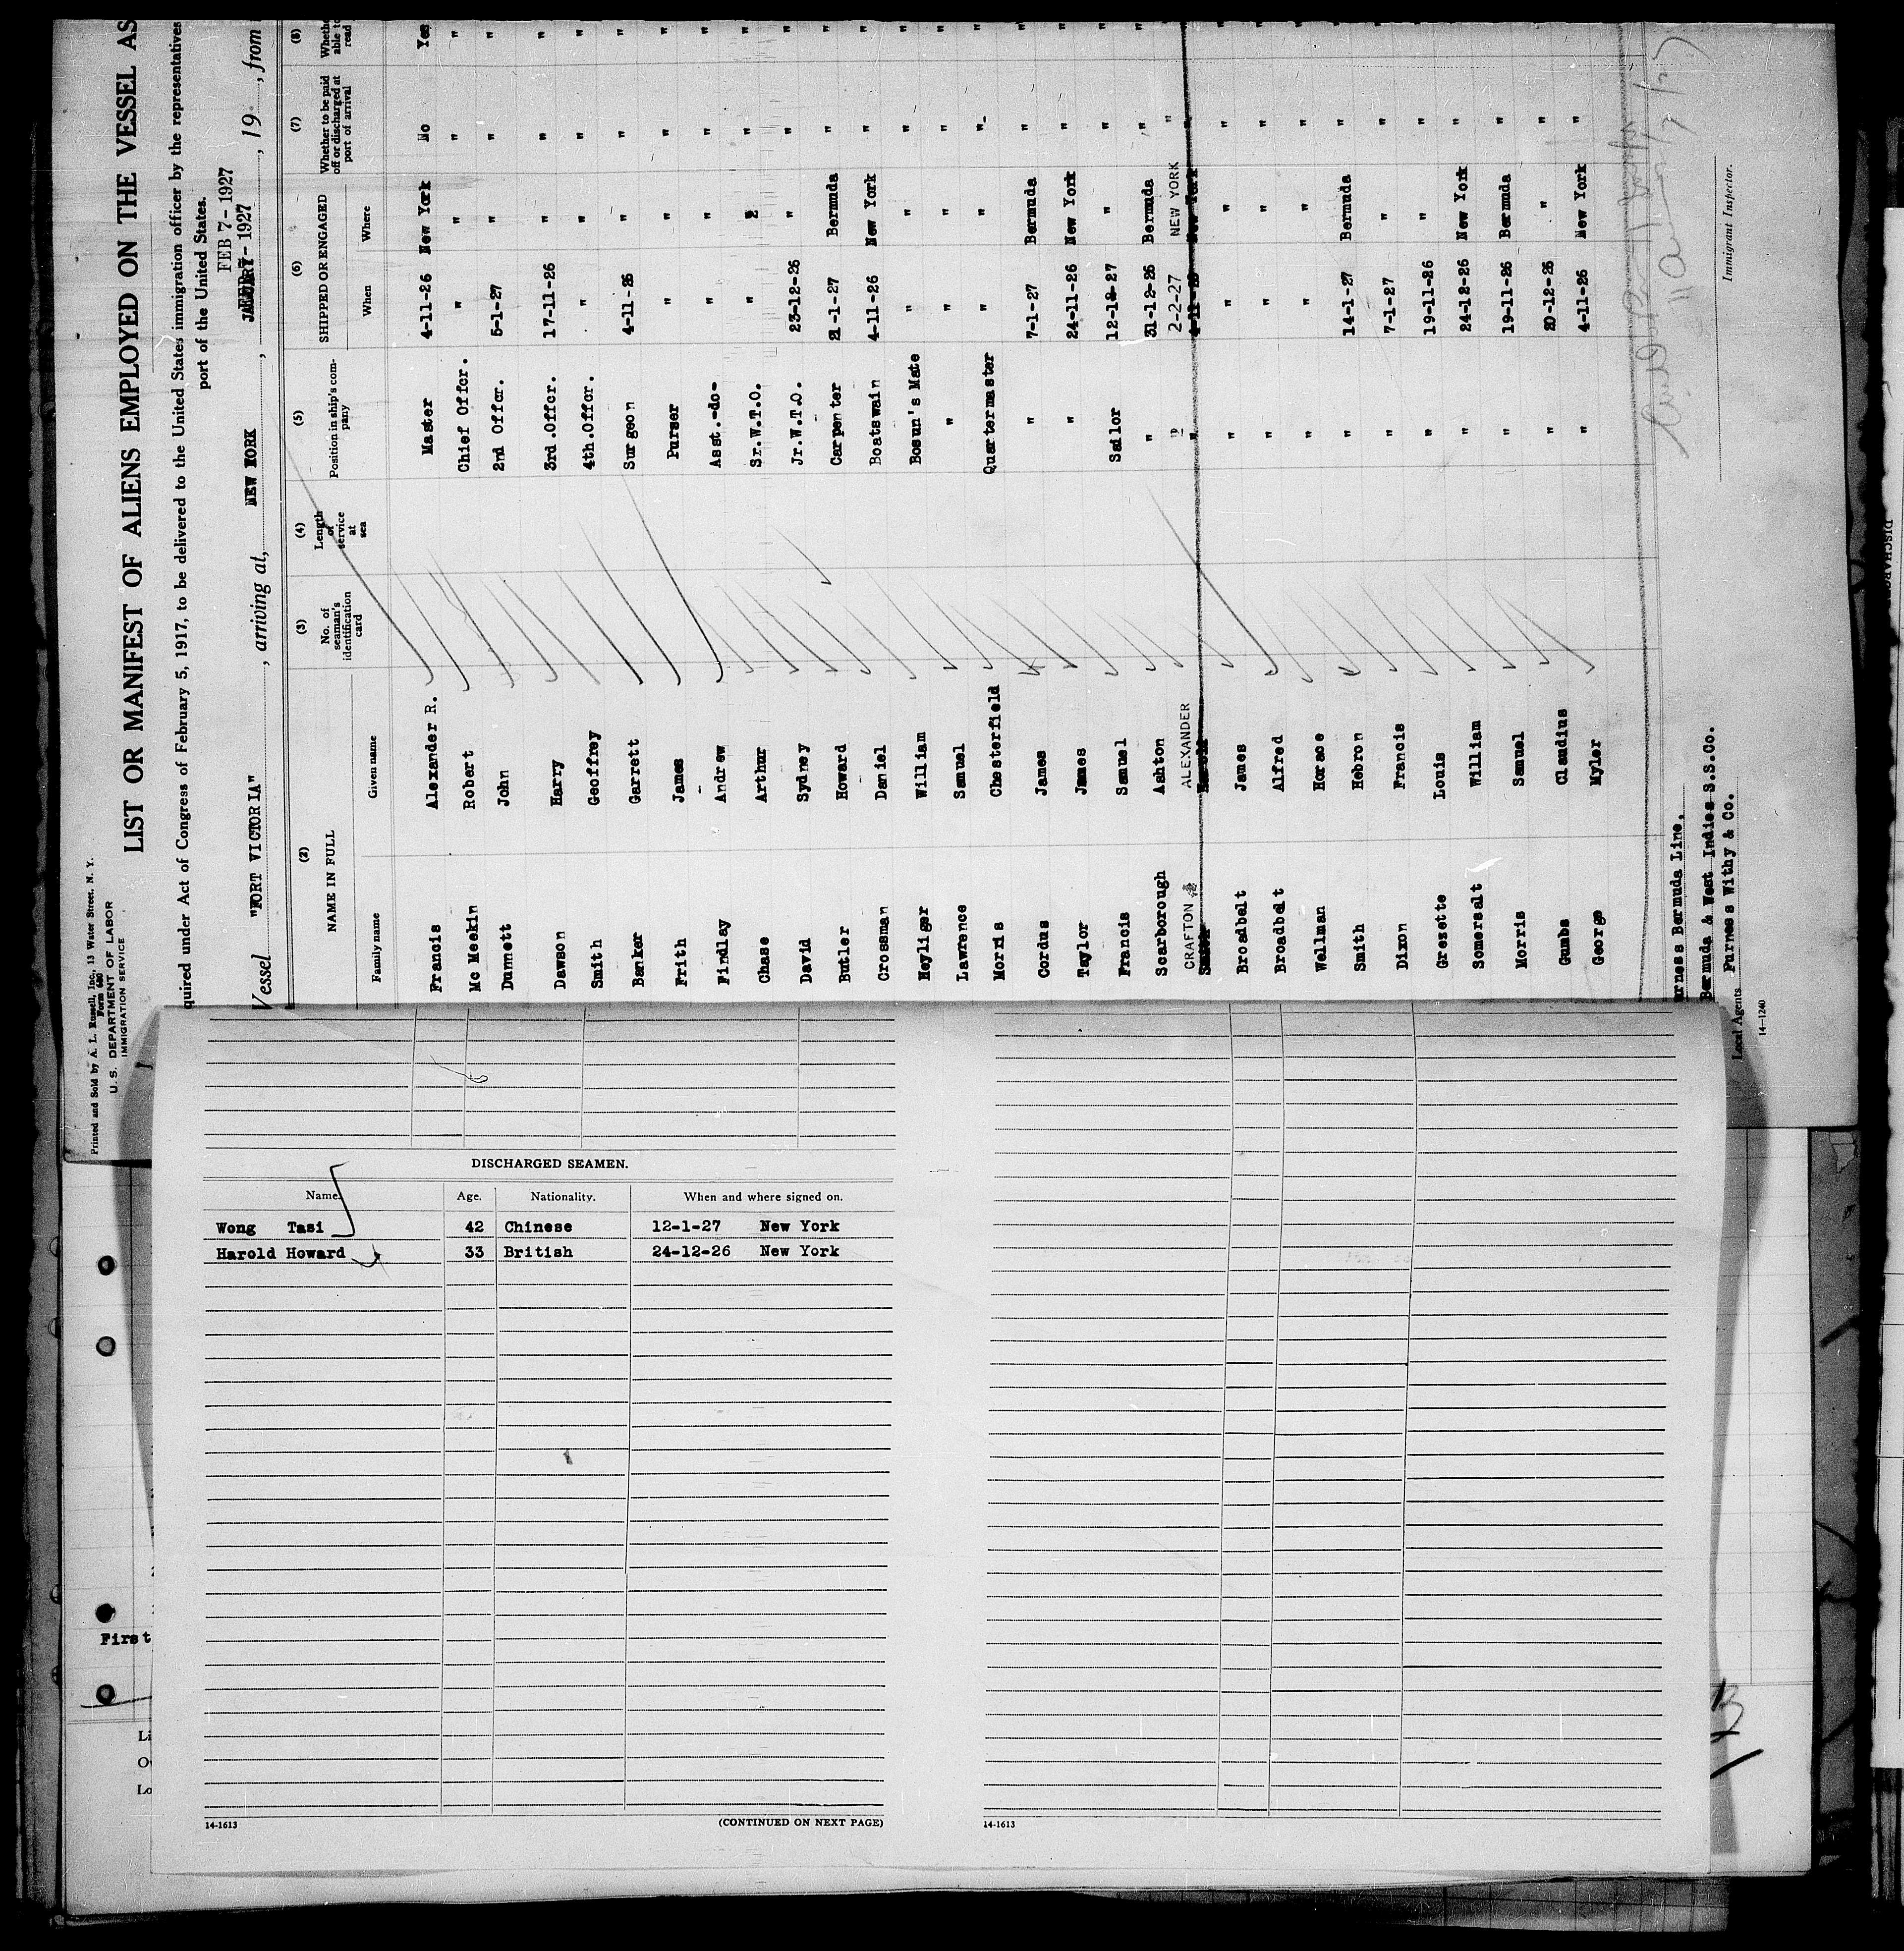 Printed and Sold by A. L. Russell, Inc., 13 Water Street, N. Y.
Form 680
U. S. DEPARTMENT OF LABOR
IMMIGRATION SERVICE
LIST OR MANIFEST OF ALIENS EMPLOYED ON THE VESSEL AS
quired under Act of Congress of February 5, 1917, to be delivered to the United States immigration officer by the representatives
port of the United States.
FEB 7- 1927
Vessel "FORT VICTORIA", arriving at, NEW YORK, 1927, 19, from
(2) (3) (4) (5) (6) (7) (8)
NAME IN FULL No. of seaman's identification card Length of service at sea Position in ship's company SHIPPED OR ENGAGED Whether to be paid off or discharged at port of arrival Whethe able to read
Family name Given name When Where
Francis Alexander R. Master 4-11-26 New York No Yes
Mc Meekin Robert Chief Offcr. " " " "
Dunnett John 2nd Offcr. 5-1-27 " " "
Dawson Harry 3rd.Offcr. 17-11-26 " " "
Smith Geoffrey 4th.Offcr. " " " "
Banker Garrett Surgeon 4-11-26 " " "
Frith James Purser " " " "
Findlay Andrew Asst.-do- " " " "
Chase Arthur Sr.W.T.O. " " " "
David Sydney Jr.W.T.O. 23-12-26 " " "
Butler Howard Carpenter 21-1-27 Bermuda " "
Crossman Daniel Boatswain 4-11-26 New York " "
Heyliger William Bosun's Mate " " " "
Lawrence Samuel " " " " "
Morris Chesterfield Quartermaster " " " "
Cordus James " 7-1-27 Bermuda " "
Taylor James " 24-11-26 New York " "
Francis Samuel Sailor 12-12-27 " " "
Scarborough Ashton " 31-12-26 Bermuda " "
CRAFTON ALEXANDER " 2-2-27 NEW YORK " "
Harold " 4-11-26 New York " "
Broadbelt James " " " " "
Broadbelt Alfred " " " " "
Wellman Horace " " " " "
Smith Hebron " 14-1-27 Bermuda " "
Dixon Francis " 7-1-27 " " "
Grezette Louis " 19-11-26 " " "
Somersalt William " 24-12-26 New York " "
Morris Samuel " 19-11-26 Bermuda " "
Gumbs Claudius " 20-12-26 " " "
George Myler " 4-11-26 New York " "
urness Bermuda Line.
Bermuda & West Indies S.S.Co.
Local Agents Furness Withy & Co.
14-1240
Immigrant Inspector.
DISCHARGED SEAMEN.
Name. Age. Nationality. When and where signed on.
Wong Tasi 42 Chinese 12-1-27 New York
Harold Howard 33 British 24-12-26 New York
14-1613
(CONTINUED ON NEXT PAGE)
14-1613
First
Li
Ov
Lo